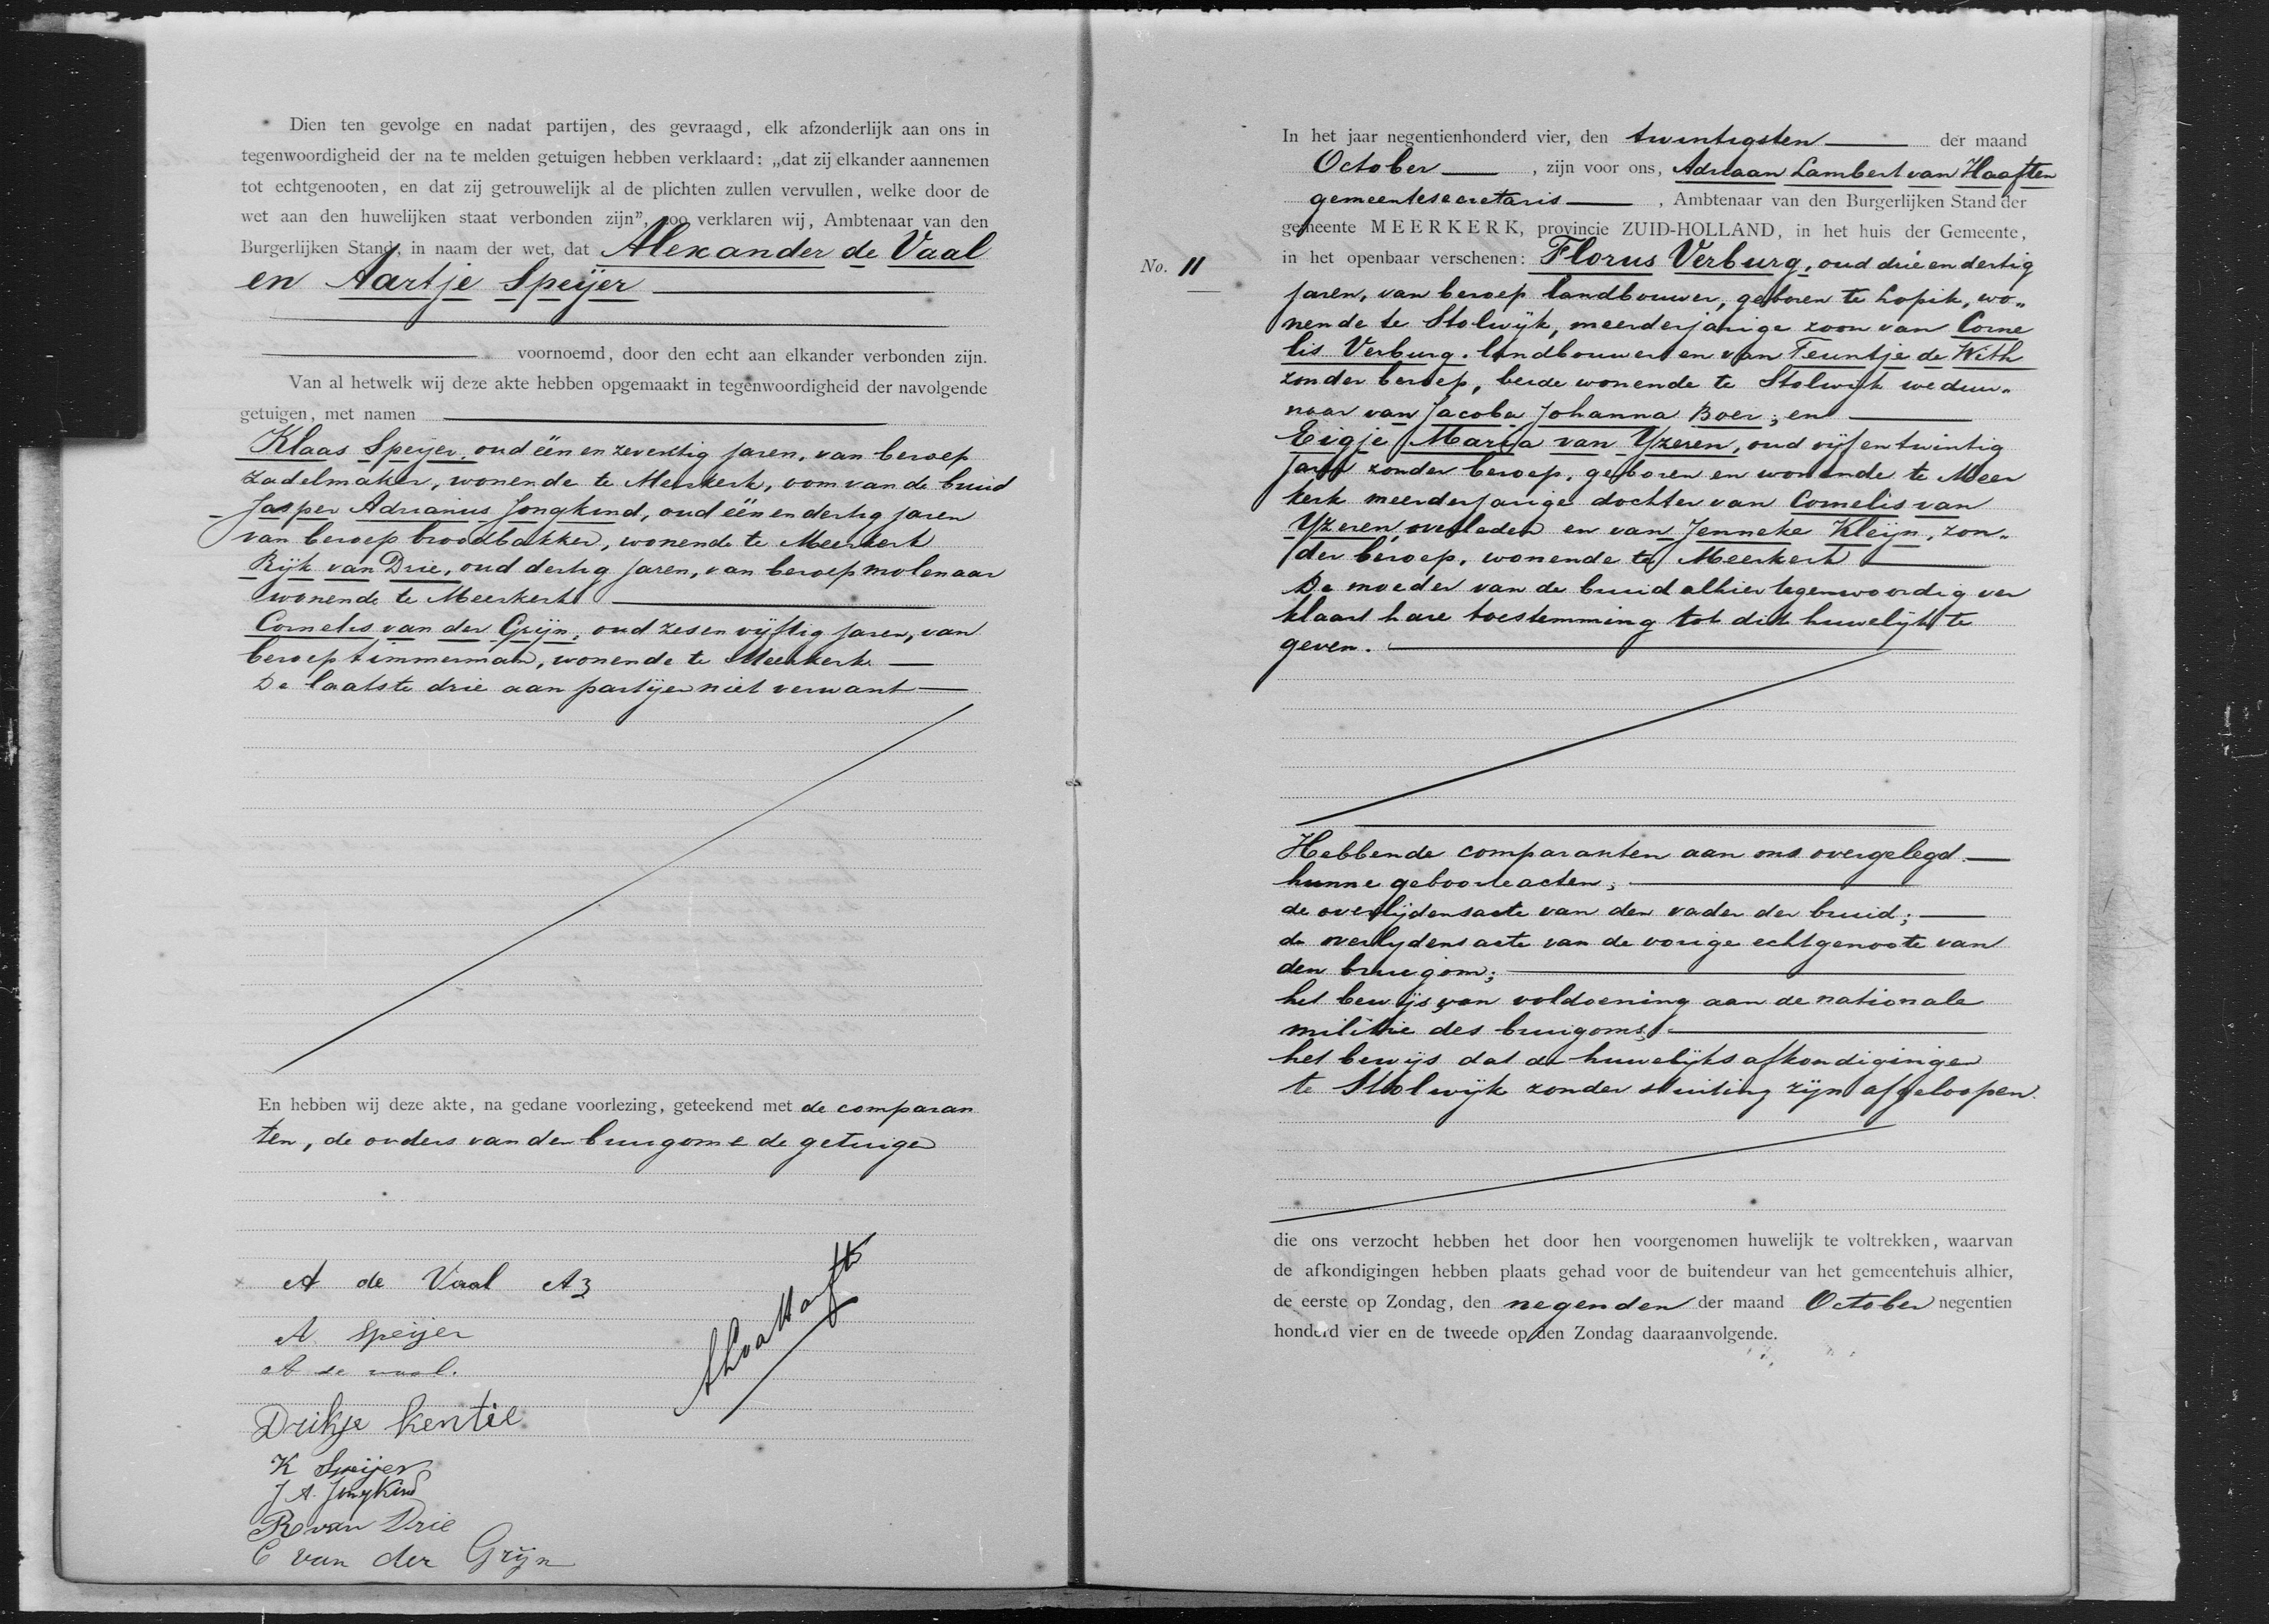 Dien ten gevolge en nadat partijen, des gevraagd, elk afzonderlijk aan ons in
tegenwoordigheid der na te melden getuigen hebben verklaard: „dat zij elkander aannemen
tot echtgenooten, en dat zij getrouwelijk al de plichten zullen vervullen, welke door de
wet aan den huwelijken staat verbonden zijn”, zoo verklaren wij, Ambtenaar van den
Burgerlijken Stand, in naam der wet, dat Alexander de Vaal
en Aartje Speijer
voornoemd, door den echt aan elkander verbonden zijn.
Van al hetwelk wij deze akte hebben opgemaakt in tegenwoordigheid der navolgende
getuigen, met namen
Klaas Speijer, oud één en zeventig jaren, van beroep
zadelmaker, wonende te Meerkerk, oom van de bruid
Jasper Adrianus Jongkind, oud één en dertig jaren
van beroep broodbakker, wonende te Meerkerk
Rijk van Drie, oud dertig jaren, van beroep molenaar
wonende te Meerkerk
Cornelis van der Grijn, oud zes en vijftig jaren, van
beroep timmerman, wonende te Meerkerk
De laatste drie aan partijen niet verwant
En hebben wij deze akte, na gedane voorlezing, geteekend met de comparan
ten, de ouders van den bruigom e de getuigen
A de Vaal Az
A Speijer
A de vaal.
Drikje Kentie
K Speijer
J A. Jongkind
R van Drie
C van der Grijn
No. 11
In het jaar negentienhonderd vier, den twintigsten der maand
October, zijn voor ons, Adriaan Lambert van Haaften
gemeentesecretaris, Ambtenaar van den Burgerlijken Stand der
gemeente MEERKERK, provincie ZUID-HOLLAND, in het huis der Gemeente,
in het openbaar verschenen: Florus Verburg, oud drie en dertig
jaren, van beroep landbouwer, geboren te Lopik, wo„
nende te Stolwijk, meerderjarige zoon van Corne
lis Verburg. landbouwer en van Teuntje de With
zonder beroep, beide wonende te Stolwijk weduw„
naar van Jacoba Johanna Boer; en
Eigje Maria van Yzeren, oud vijf en twintig
jaren zonder beroep, geboren en wonende te Meer
kerk meerderjarige dochter van Cornelis van
Yzeren, overleden en van Jenneke Kleijn, zon„
der beroep, wonende te Meerkerk
De moeder van de bruid alhier tegenwoordig ver
klaart hare toestemming tot dit huwelijk te
geven.
Hebbende comparanten aan ons overgelegd
hunne geboorteacten;
de overlijdensacte van den vader der bruid;
de overlijdensacte van de vorige echtgenoote van
den bruigom;
het bewijs van voldoening aan de nationale
militie des bruigoms;
het bewijs dat de huwelijksafkondigingen
te Stolwijk zonder stuiting zijn afgeloopen.
die ons verzocht hebben het door hen voorgenomen huwelijk te voltrekken, waarvan
de afkondigingen hebben plaats gehad voor de buitendeur van het gemeentehuis alhier,
de eerste op Zondag, den negenden der maand October negentien
honderd vier en de tweede op den Zondag daaraanvolgende.